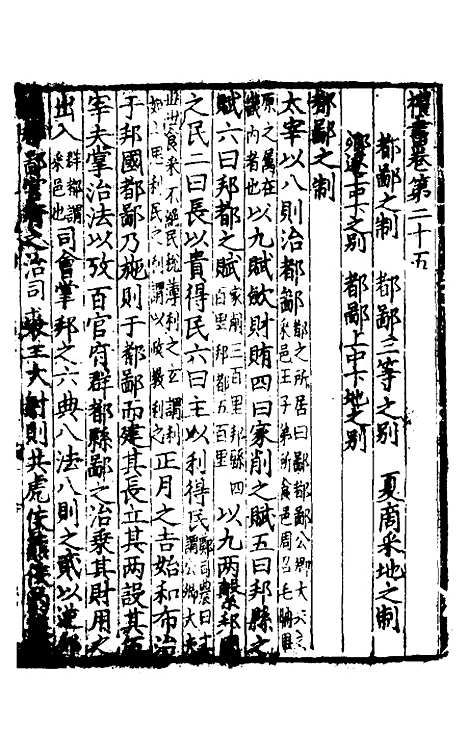 禮書卷第二十五
都鄙之制　都鄙三等之别　夏商采地之制
鄉遂上中下地之别　都鄙上中下地之别
都鄙之制
太宰以八則治都鄙都之所居曰鄙都鄙公卿大夫之采邑王子弟所食邑周召毛聃畢
原之屬在畿内者也以九賦歛財賄四曰家削之賦五曰邦縣之
賦六曰邦都之賦家削三百里邦縣四百里邦都五百里以九兩繫邦國
之民二曰長以貴得民六曰主以利得民鄭司農曰主謂公卿大夫
世世食采不絶民税薄利之玄謂利讀如上思利民之利謂以政教利之正月之吉始和布治
于邦國都鄙乃施則于都鄙而建其長立其兩設其伍
宰夫掌治法以攷百官府群都縣鄙之治乗其財用之
出入群都謂采邑也司會掌邦之六典八法八則之貳以逆邦
國都鄙官府之治司裘王大射則共虎侯熊侯豹侯